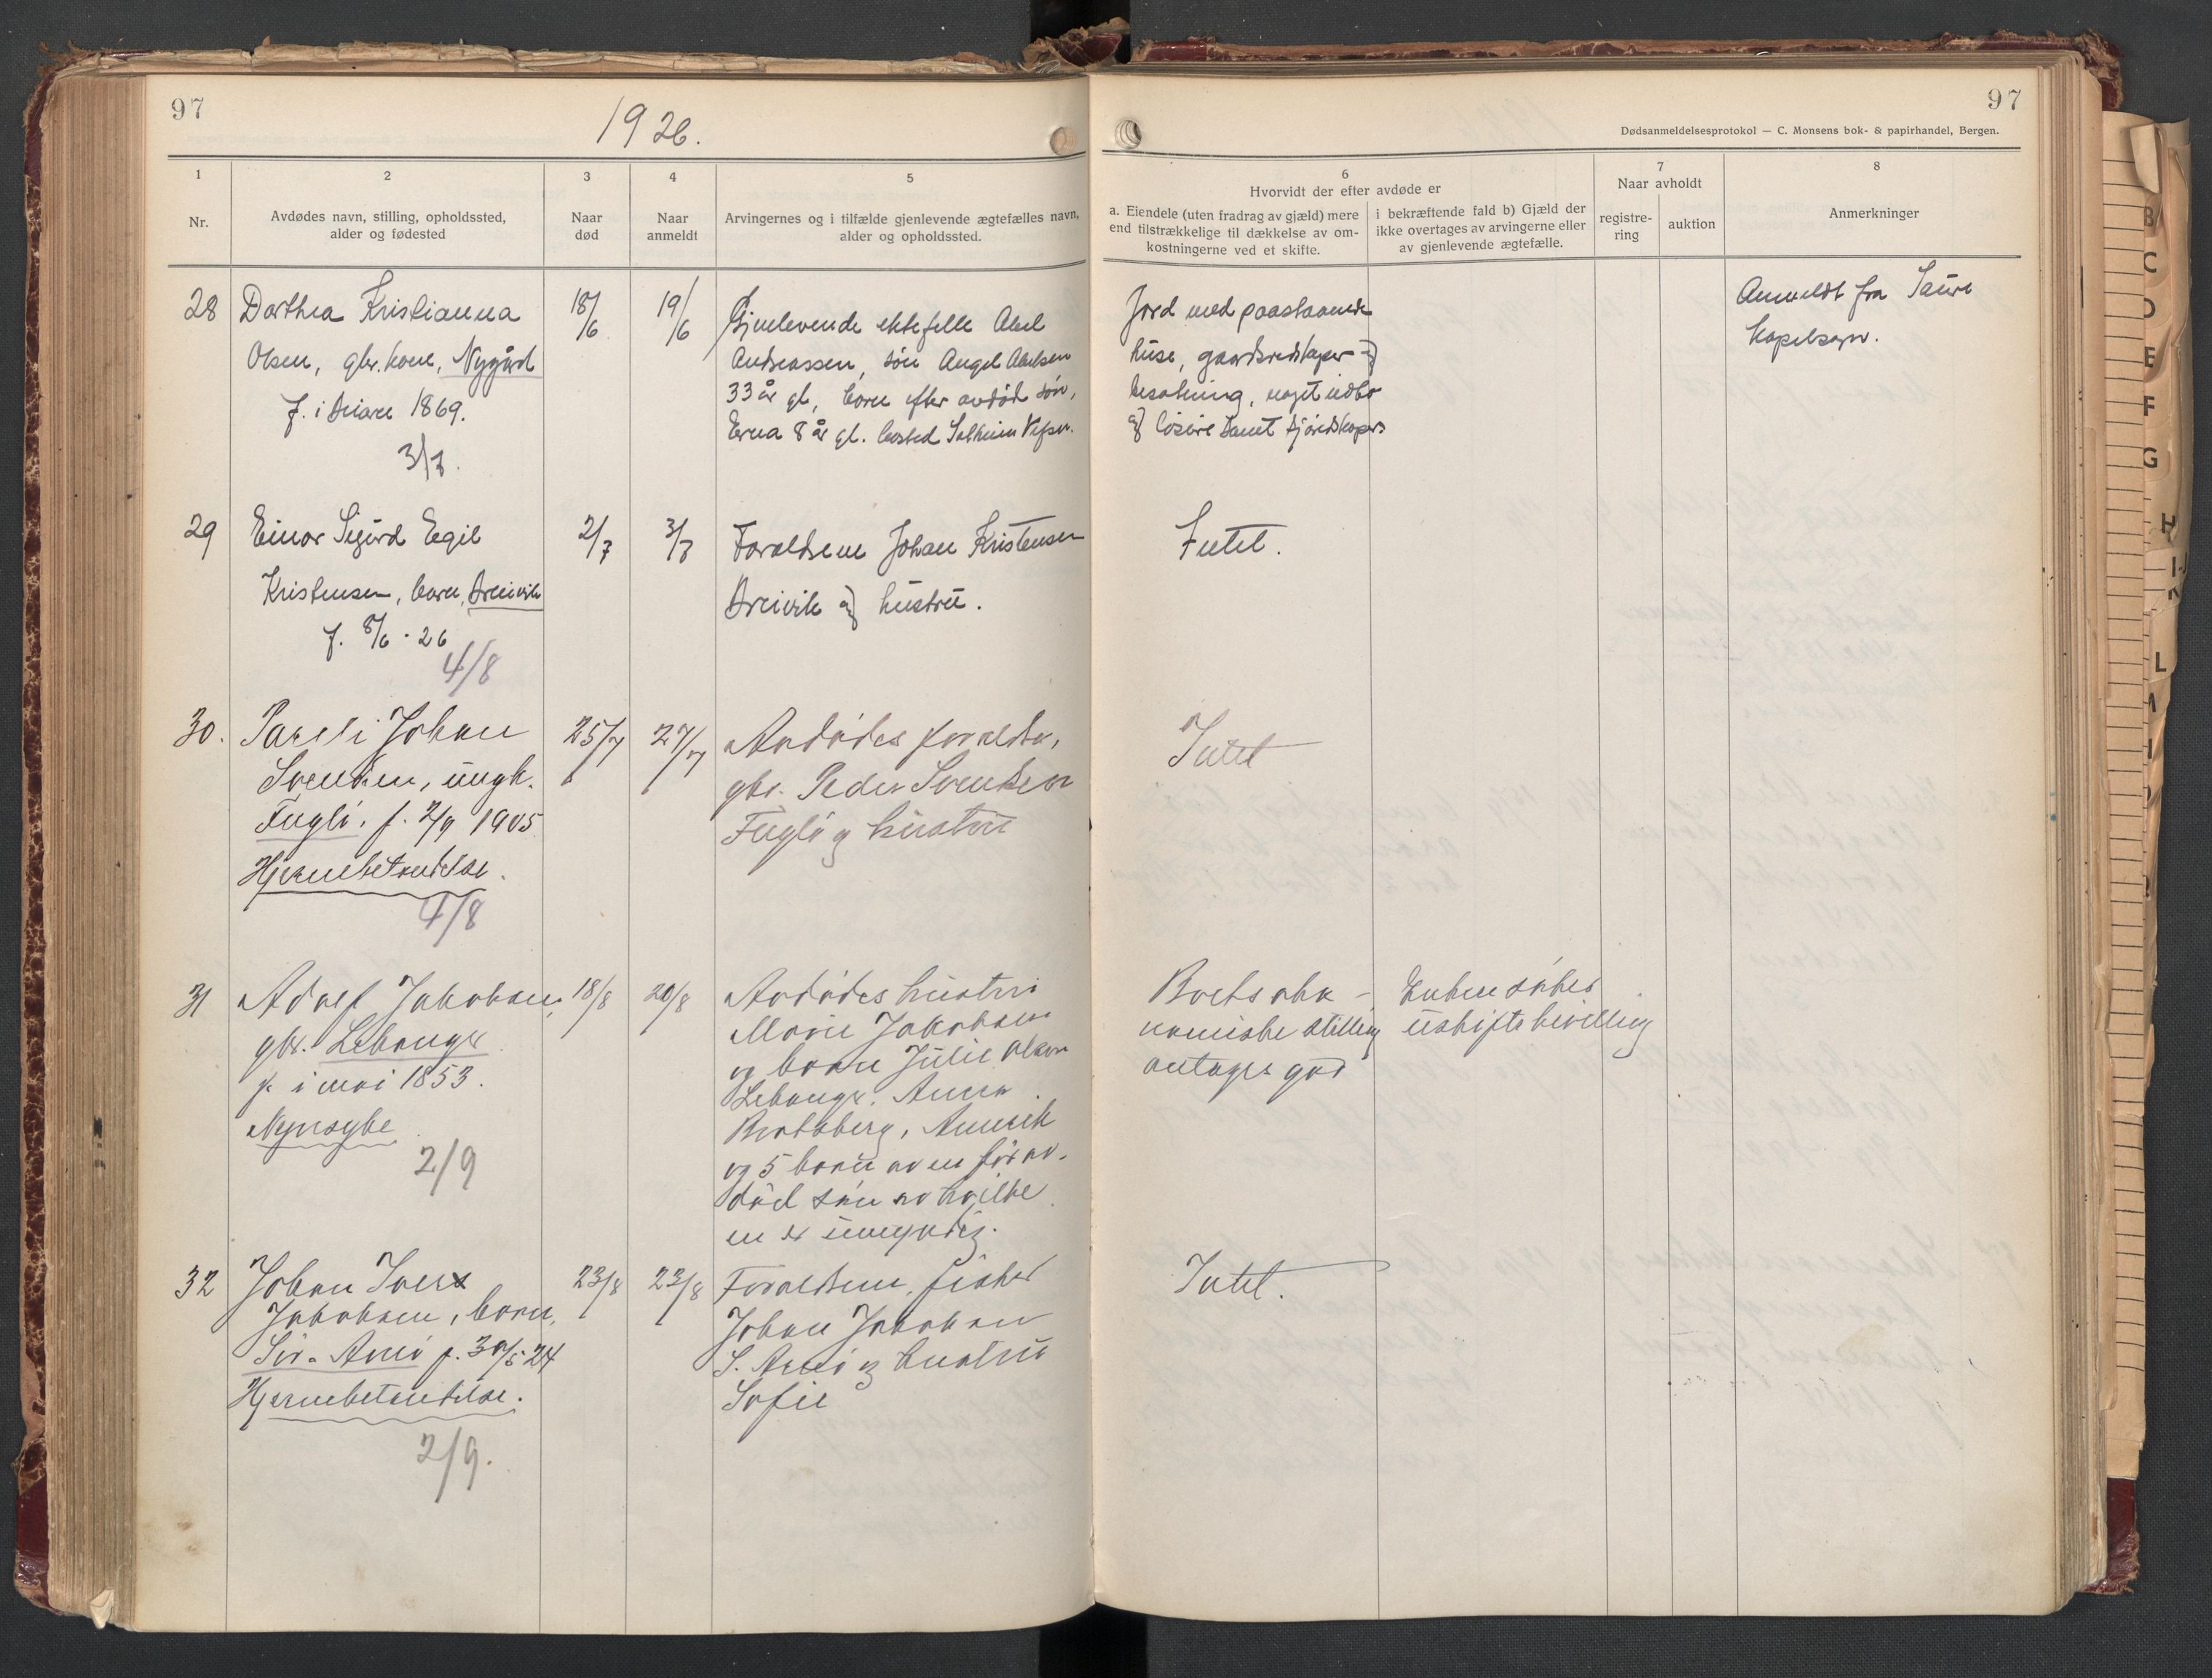 97
1926.
97
Dødsanmeldelsesprotokol — C. Monsens bok- & papirhandel, Bergen.
1
Nr.
2
Avdødes navn, stilling, opholdssted,
alder og fødested
3
Naar
død
4
Naar
anmeldt
5
Arvingernes og i tilfælde gjenlevende ægtefælles navn,
alder og opholdssted.
6
Hvorvidt der efter avdøde er
a. Eiendele (uten fradrag av gjæld) mere
end tilstrækkelige til dækkelse av om-
kostningerne ved et skifte.
i bekræftende fald b) Gjæld der
ikke overtages av arvingerne eller
av gjenlevende ægtefælle.
7
Naar avholdt
registre-
ring
auktion
8
Anmerkninger
28
Dorthea Kristianna
Olsen, gbr. kone, Nygård
f. i 1869.
3/7.
18/6
19/6
Gjenlevende ektefelle Abel
Andreassen, søn Angel Abelsen
33 år gl, barn efter avdød søn,
Erna 8 år gl. bosted Solheim Vefsn.
Jord med paastaaende
huse, gaardsredskaper og
besætning, noget indbo
og løsøre samt sjøredskaper
Anmeldt fra Saura
kapelsogn.
29
Einar Sigurd Egil
Kristensen, barn, Breivik
f. 8/6 - 26
4/8
2/7
3/7
Foreldrene Johan Kristensen
Breivik og hustru.
Intet.
30.
Pareli Johan
Svendsen, ungk.
Fuglø, f. 2/9 1905
Hjernebetendelse.
4/8
25/7
27/7
Avdødes forældre,
gbr. Peder Svendsen
Fuglø og hustru
Intet
31
Adolf Jakobsen,
gbr. Lekanger
f. i mai 1853.
Nyresyke
2/9
18/8
20/8
Avdødes hustru
Marie Jakobsen
og barn Julie Olsen
Lekanger. Anna
Bratsberg,
og 5 barn av en før av-
død søn av hvilke
en er umyndig.
Boets øko-
nomiske stilling
antages god
Enken søker
uskiftebevilling
32
Johan Iver
Jakobsen, barn,
Sør-Arnø f. 30/5 24
Hjernebetendelse.
2/9.
23/8
23/8
Foreldrene, fisker
Johan Jakobsen
S. Arnø og hustru
Sofie
Intet.
B
C
D
E
F
G
H
I-J
K
L
M